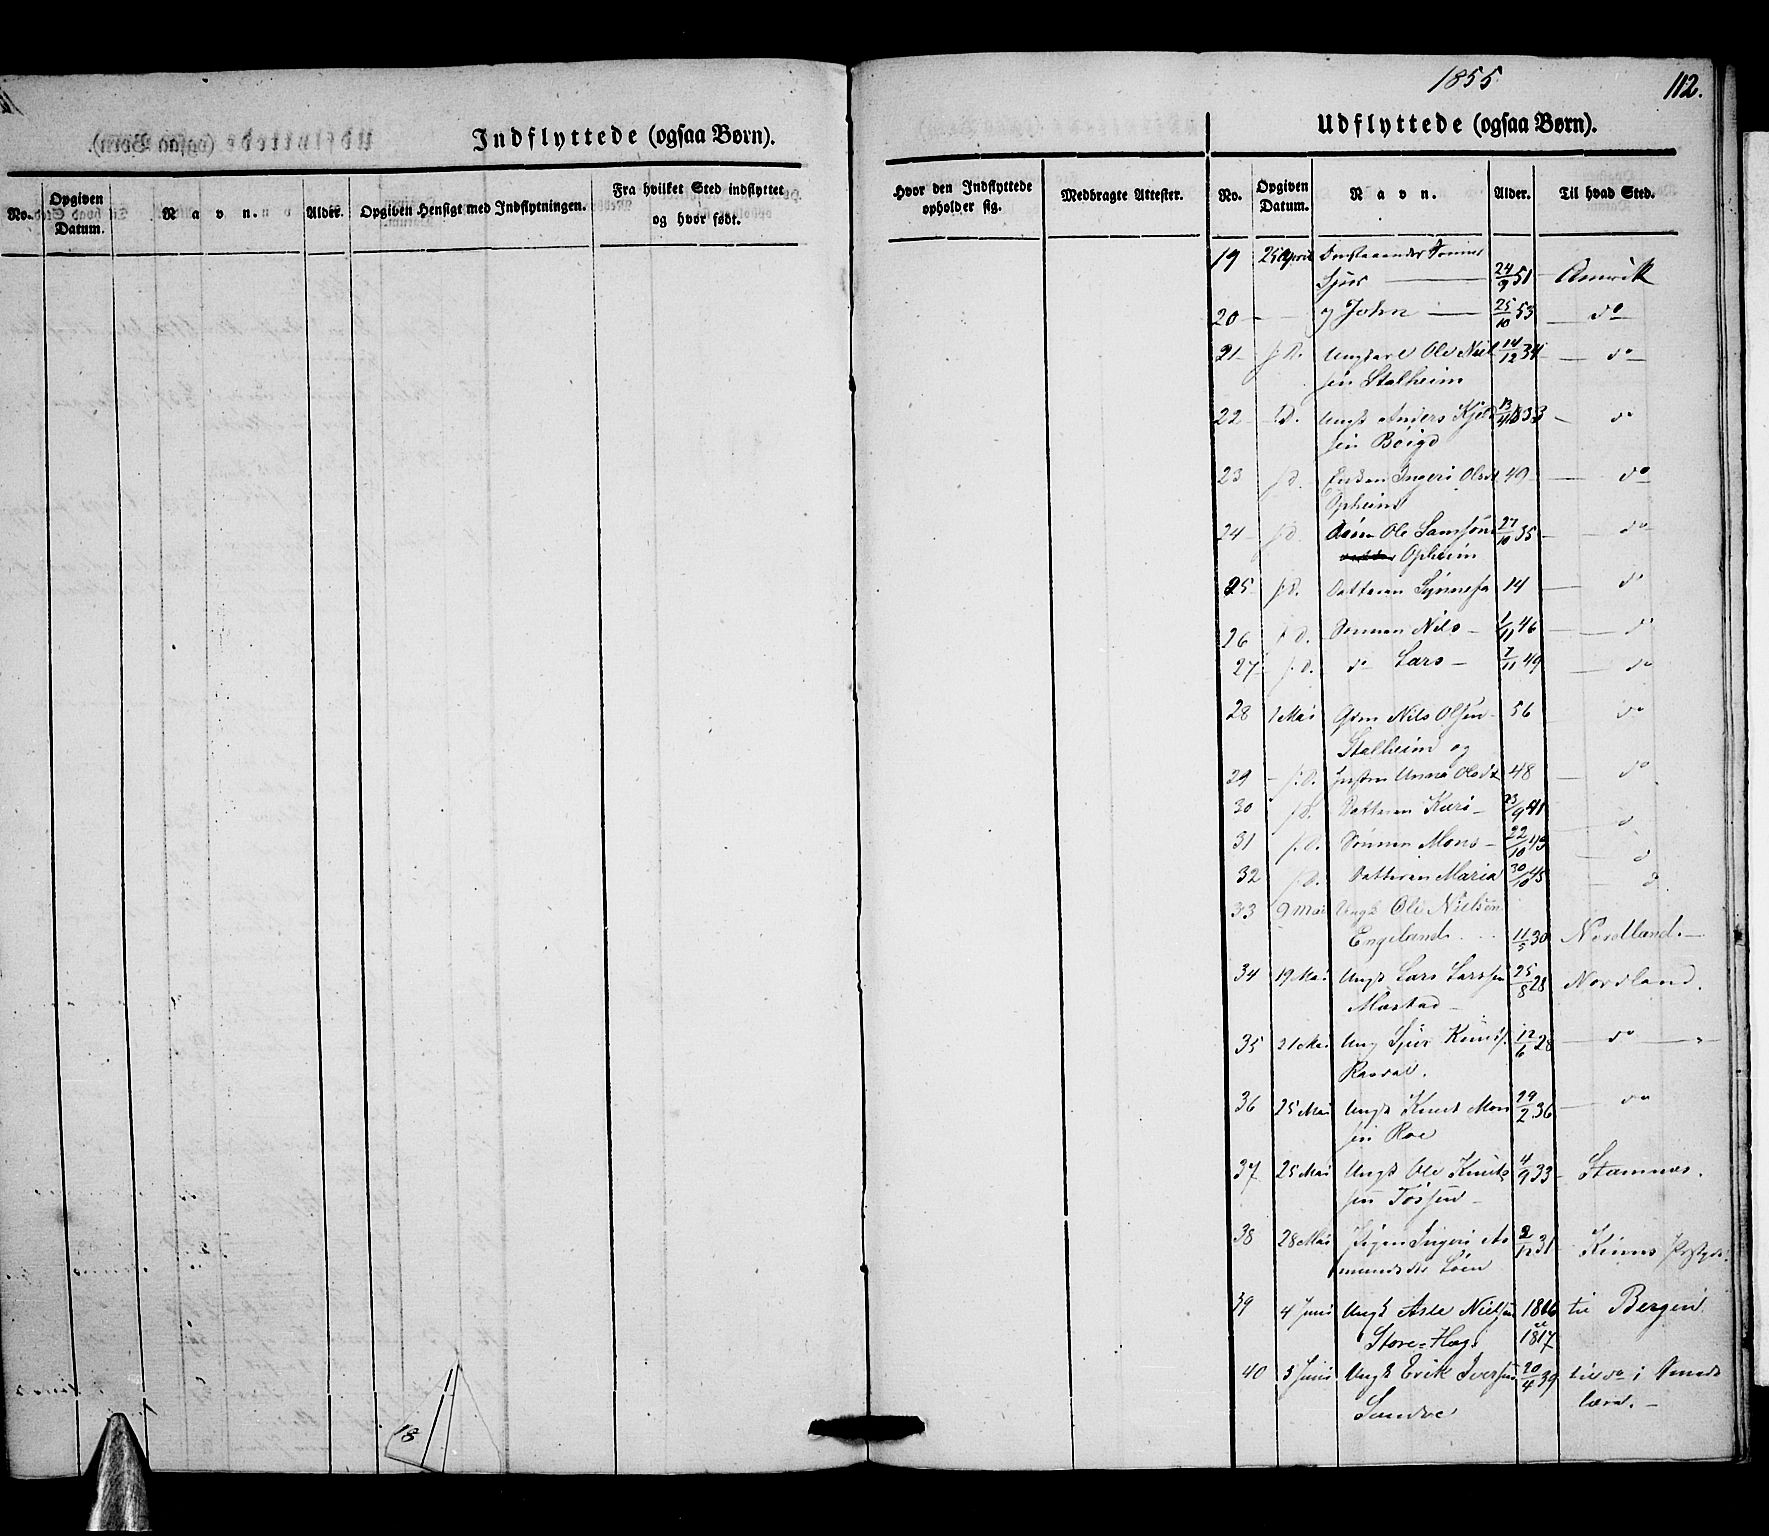 1855
112.
Indflyttede (ogsaa Børn).
Udflyttede (ogsaa Børn).
No.
Opgiven Datum.
Navn.
Alder.
Opgiven Hensigt med Indflytningen.
Fra hvilket Sted indflyttet og hvor født.
Hvor den Indflyttede opholder sig.
Medbragte Attester.
No.
Opgiven Datum.
Navn.
Alder.
Til hvad Sted.
19 25 April
Sjur 24/9 51 Amerik
20 — John — 25/10 53 — do
21 — f. D. Ungkarl Ole Niel 14/12 34 — do
sen Stalheim
22 — f. D. Ungk Anders 33 — do
sen
23 f. D. Enken Ingeri Olsdt 49 — do
Opheim
24 f. D. Sønen Ole Samsøn 27/10 35 — do
Opheim
25 f. D. Datteren Synneva 14 — do
26 f. D. Sønnen Nils — 1/11 46 — do
27 f. D. do Lars — 7/11 49 — do
28 1 Mai Gdm Nils Olsen 56 — do
Stalheim og
29 — f. D. Anna Olsdt 48 — do
30 f. D. Datteren Kari — 23/9 41 — do
31 f. D. Sønnen Mons — 22/10 43 — d
32 f. D. Datteren Maria 30/10 45 — d
33 9 Mai Ungk Ole Nielsen
Engeland 11/5 30 Nordland. —
34 19 Mai Ungk Lars Larssen 25/8 28 Nordland.
Mastad —
35 21 Mai Ung Sjur Knuds. 12/6 28 — do — "
36 25 Mai Ungk Knud Mon 29/2 36 — do
sen Roe
37 25 Mai Ungk Ole Knuds 4/9 33 — Stamnes.
sen
38 28 Mai Pigen Ingeri 2/12 31
39 4 Juni Ungk Asle Nielsen 1816 til Bergen
1817
40 5 Juni Ungk Erik Iversen 20/4 39 til do i Smede
Sandve lære. —
18